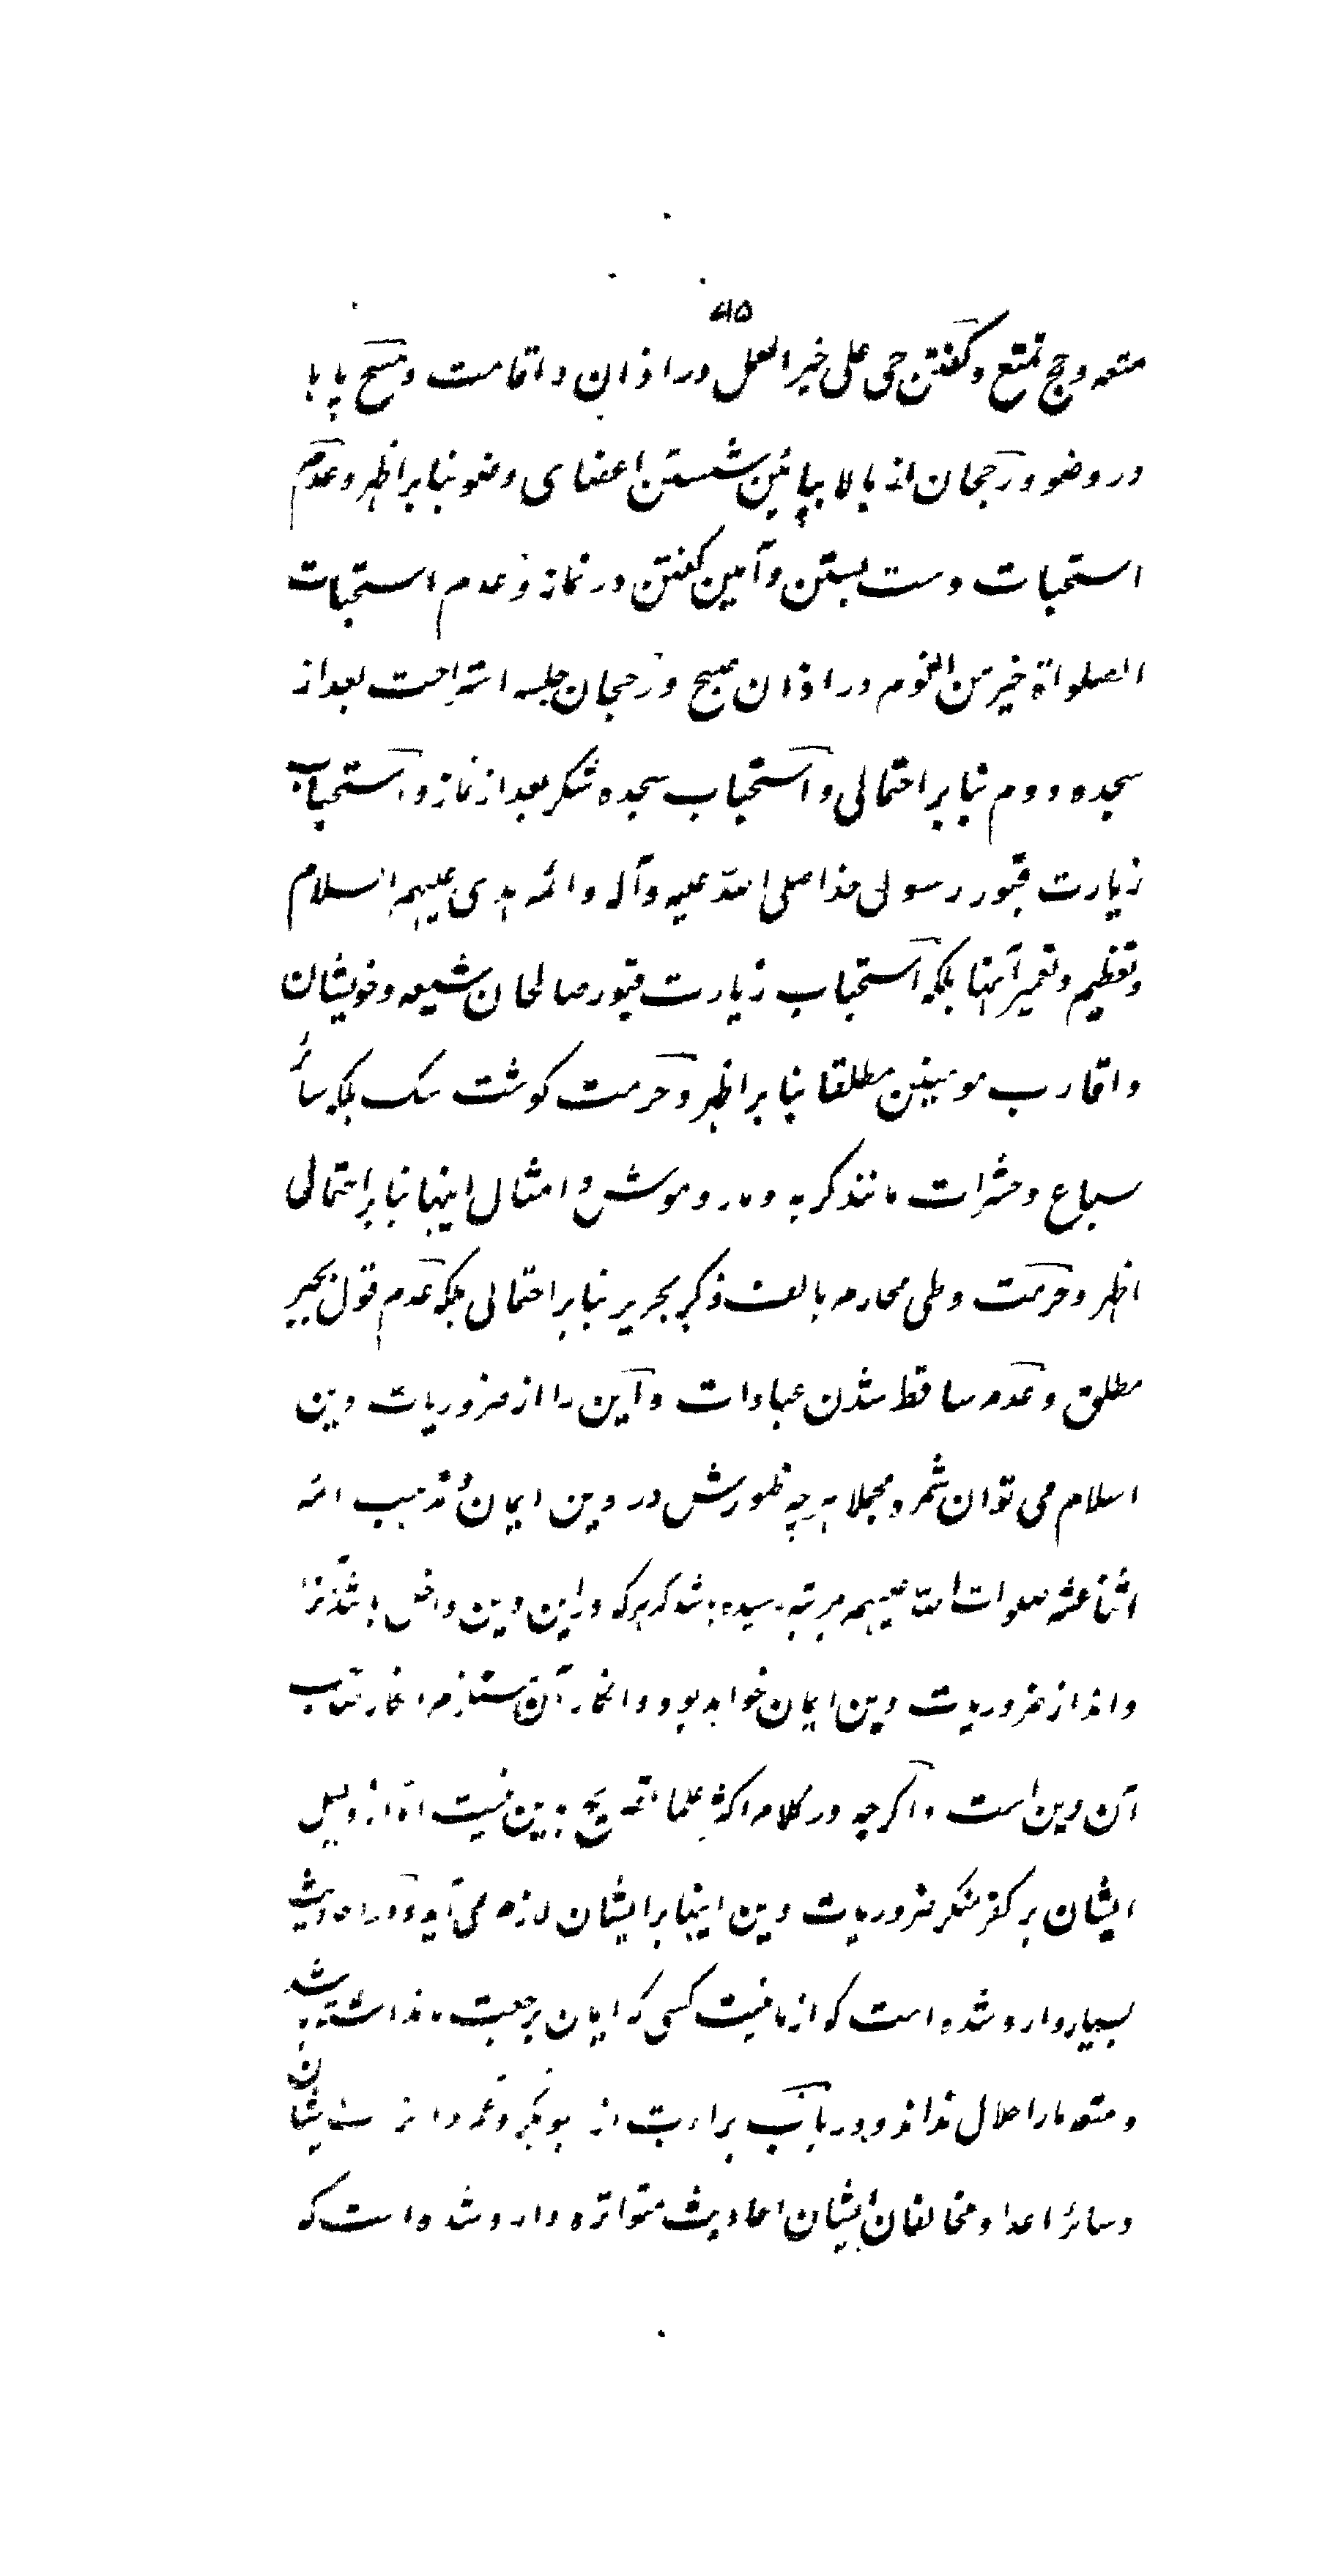 ۴۱۵
متعه و حج تمتع و گفتن حی علی خیر العمل در اذان و اقامت و مسح پاها
در وضو و رجحان از بالا بپائین شستن اعضای وضو بنابر اظهر و عدم
استحبات دست بستن و آمین گفتن در نماز و عدم استحبات
الصلواة خیر من النوم در اذان صبح و رجحان جلسه استراحت بعد از
سجده دوم بنابر احتمالی و استحباب سجده شکر بعد از نماز و استحباب
زیارت قبور رسول خدا صلی الله علیه و آله و ائمه هدی علیهم السلام
و تعظیم و تعمیر آنها بلکه استحباب زیارت قبور صالحان شیعه و خویشان
و اقارب مومنین مطلقا بنابر اظهر و حرمت گوشت سگ بلکه سائر
سباع و حشرات مانند گربه و مار و موش و امثال اینها بنابر احتمالی
اظهر و حرمت وطی محارم با لف ذکر بحریر بنابر احتمالی بلکه عدم قول بجبر
مطلق و عدم ساقط شدن عبادات و آین را از ضروریات دین
اسلام می توان شمرد و مجملا هر چه ظهورش در دین ایمان و مذهب ائمه
اثنا عشر صلوات الله علیهم بمرتبه رسیده باشد که هر که در این دین داخل باشد آنرا
داند از ضروریات دین ایمان خواهد بود و انکار آن مستلزم انکار صاحب
آن دین است و اگر چه در کلام اکثر علما تصریح باین نیست اما از دلیل
ایشان بر کفر منکر ضروریات دین اینها بر ایشان لازم می آید و در احادیث
بسیار وارد شده است که از ما نیست کسی که ایمان برجعت ما نداشته باشد
و متعه ما را حلال نداند و در باب براءت از بوبکر و عمر و ایشان
و سائر اعدا و مخالفان ایشان احادیث متواتره وارد شده است که